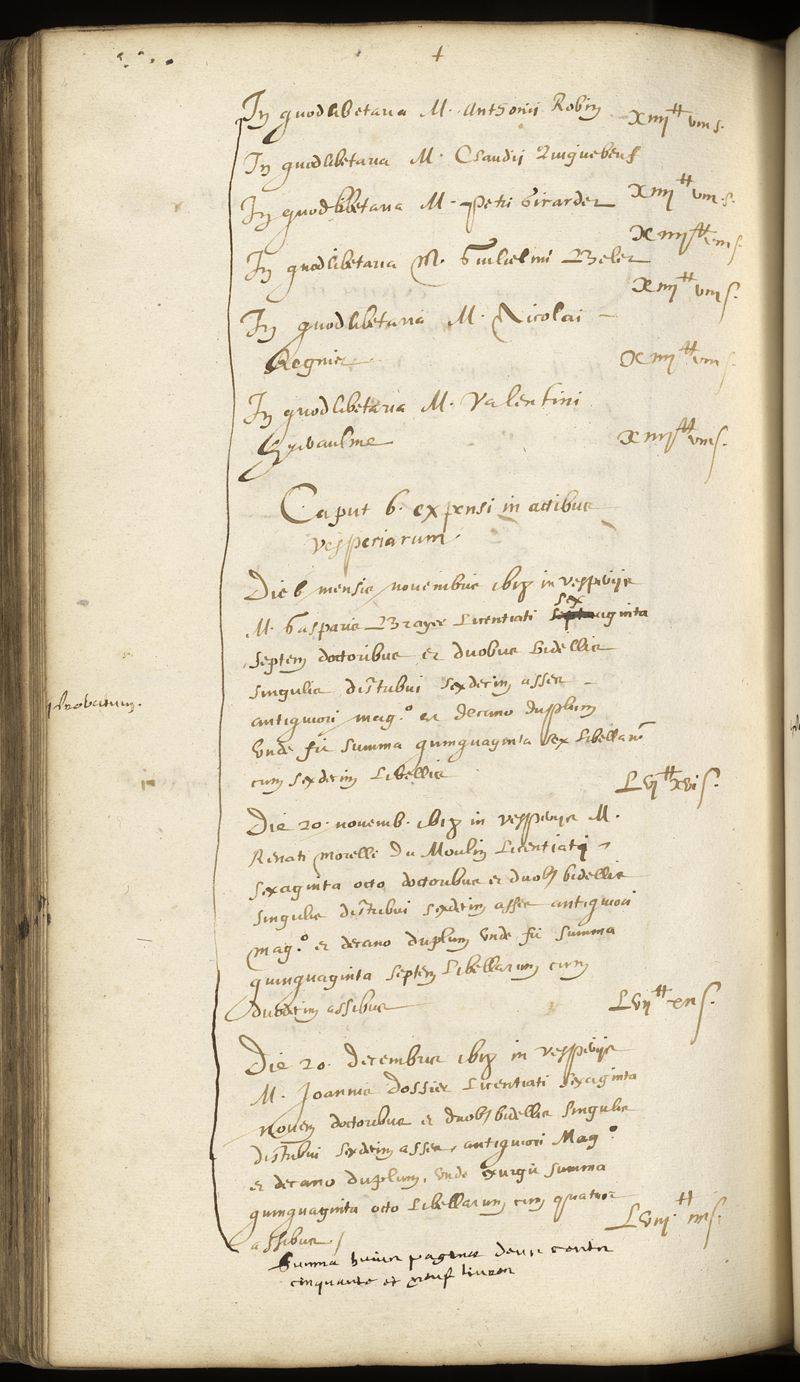 4
In quodlibetaria M. Anthonii Robin xiiij ₶ viii s.
In quodlibetaria M. Claudij Quiquebeuf
In quodlibetaria M. Petri Girardet xiiij ₶ viii s.
In quodlibetaria M. Gulielmi Belet xiiij ₶ viii s.
xiiij ₶ viii s.
In quodlibetaria M. Nicolai
Regnier xiiij ₶ viii s.
In quodlibetaria M. Valentini
Hyeraulme xiiij ₶ viii s.
Caput 6. expensi in actibus
vesperiarum.
Die 6 mensis novembris 1617 in vesperijs
M. Gasparis Brayer Licentiati sex septuaginta
septem doctoribus et duobus bidellis
singulis distribui sexdecim asses
antiquiori mag.o et decano duplum
unde fit summa quinquaginta sex libellarum
cum sexdecim libellis
Lvj ₶ xvi s.
probatum.
Die 20. novemb. 1617 in vesperijs M.
Renati Morelli Du Moulin Licentiati
sexaginta octo doctoribus et duob9 bidellis
singulis distribui sexdecim asses antiquiori
mag.o et decano duplum unde fit summa
quinquaginta septem Libellarum cum
duodecim assibus Lvij ₶ xii s.
Die 20. decembris 1617 in vesperijs
M. Joannis Dossier Licentiati sexaginta
novem doctoribus et duob9 bidellis singulis
distribui sexdecim asses, antiquiori Mag.o
et decano duplum, unde exurgit summa
quinquaginta octo Libellarum cum quatuor
assibus. Lviii ₶ iiii s.
Summa huius paginae deux centz
cinquante et neuf livres